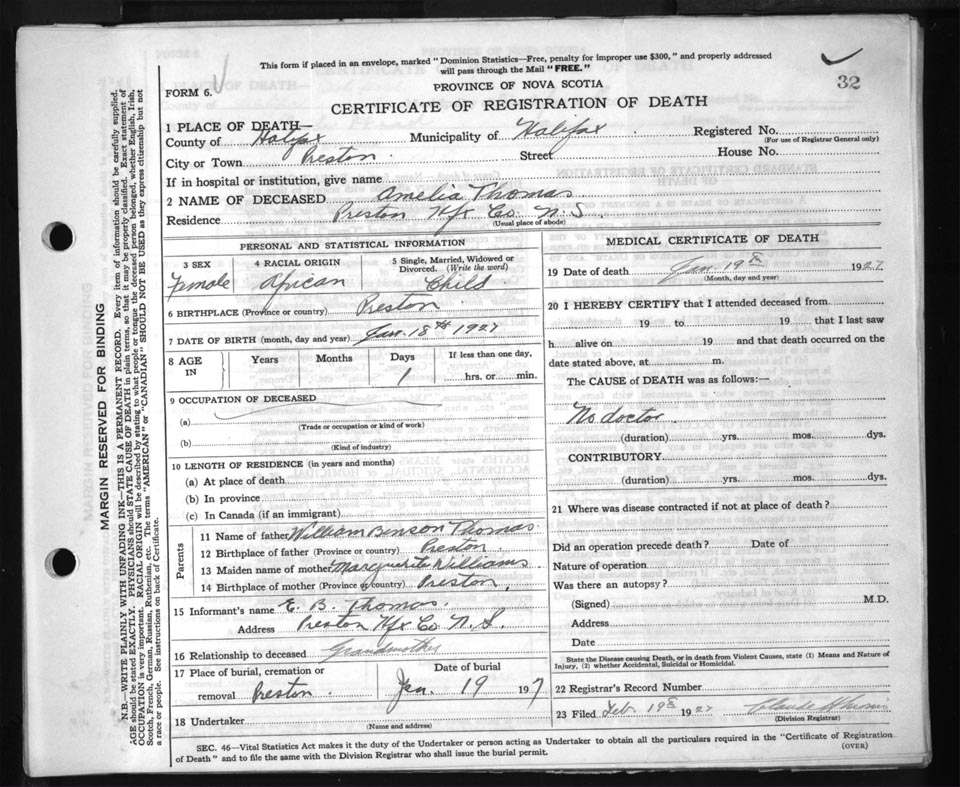 This form if placed in an envelope, marked "Dominion Statistics—Free, penalty for improper use $300," and properly addressed
will pass through the Mail "FREE."
32
FORM 6.
PROVINCE OF NOVA SCOTIA
CERTIFICATE OF REGISTRATION OF DEATH
1 PLACE OF DEATH—
County of Halifax Municipality of Halifax Registered No.
(For use of Registrar General only)
City or Town Preston Street House No.
If in hospital or institution, give name
2 NAME OF DECEASED Amelia Thomas
Residence Preston Hfx Co. N.S.
(Usual place of abode)
PERSONAL AND STATISTICAL INFORMATION
3 SEX 4 RACIAL ORIGIN 5 Single, Married, Widowed or
Divorced. (Write the word)
Female African Child
6 BIRTHPLACE (Province or country) Preston
7 DATE OF BIRTH (month, day and year) Jan. 18th 1927
8 AGE IN Years Months Days If less than one day,
1 hrs. or min.
9 OCCUPATION OF DECEASED
(a)
(Trade or occupation or kind of work)
(b)
(Kind of industry)
10 LENGTH OF RESIDENCE (in years and months)
(a) At place of death
(b) In province
(c) In Canada (if an immigrant)
Parents
11 Name of father William Binson Thomas
12 Birthplace of father (Province or country) Preston
13 Maiden name of mother Marguerite Williams
14 Birthplace of mother (Province or country) Preston
15 Informant's name E. B. Thomas
Address Preston Hfx Co. N.S.
16 Relationship to deceased Grandmother
17 Place of burial, cremation or Date of burial
removal Preston. Jan. 19 1927
18 Undertaker
(Name and address)
MEDICAL CERTIFICATE OF DEATH
19 Date of death Jan. 19th 1927
(Month, day and year)
20 I HEREBY CERTIFY that I attended deceased from
19 to 19 that I last saw
h alive on 19 and that death occurred on the
date stated above, at m.
The CAUSE of DEATH was as follows:—
No doctor
(duration) yrs. mos. dys.
CONTRIBUTORY
(duration) yrs. mos. dys.
21 Where was disease contracted if not at place of death?
Did an operation precede death? Date of
Nature of operation
Was there an autopsy?
(Signed) M.D.
Address
Date
State the Disease causing Death, or in death from Violent Causes, state (1) Means and Nature of
Injury, (2) whether Accidental, Suicidal or Homicidal.
22 Registrar's Record Number
23 Filed Feb. 19th 1927 Claude
(Division Registrar)
SEC. 46—Vital Statistics Act makes it the duty of the Undertaker or person acting as Undertaker to obtain all the particulars required in the "Certificate of Registration
of Death" and to file the same with the Division Registrar who shall issue the burial permit.
(OVER)
MARGIN RESERVED FOR BINDING
N.B.—WRITE PLAINLY WITH UNFADING INK—THIS IS A PERMANENT RECORD. Every item of information should be carefully supplied.
AGE should be stated EXACTLY. PHYSICIANS should STATE CAUSE OF DEATH in plain terms, so that it may be properly classified. Exact statement of
OCCUPATION is very important. RACIAL ORIGIN will be described by stating to what people or tongue the deceased person belonged, whether English, Irish,
Scotch, French, German, Russian, Ruthenian, etc. The terms "AMERICAN" or "CANADIAN" SHOULD NOT BE USED as they express citizenship but not
a race or people. See instructions on back of Certificate.